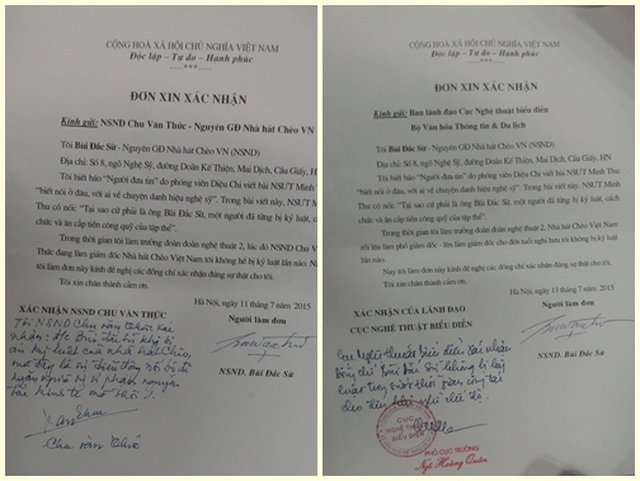 CỘNG HOÀ XÃ HỘI CHỦ NGHĨA VIỆT NAM
Độc lập – Tự do – Hạnh phúc
----***----
ĐƠN XIN XÁC NHẬN
Kính gửi: NSND Chu Văn Thức - Nguyên GĐ Nhà hát Chèo VN
Tôi Bùi Đắc Sừ - Nguyên GĐ Nhà hát Chèo VN (NSND)
Địa chỉ: Số 8, ngõ Nghệ Sỹ, đường Doãn Kế Thiện, Mai Dịch, Cầu Giấy, H
Tôi biết báo "Người đưa tin" do phóng viên Diệu Chi viết bài NSƯT Minh
"biết nói ở đâu, với ai về chuyện danh hiệu nghệ sỹ". Trong bài viết này, NSƯT
Thu có nói: "Tại sao cứ phải là ông Bùi Đắc Sừ, một người đã từng bị kỷ luật,
chức và ăn cắp tiền công quỹ của tập thể".
Trong thời gian tôi làm trưởng đoàn đoàn nghệ thuật 2, lúc đó NSND Chu
Thức đang làm giám đốc Nhà hát Chèo Việt Nam tôi không hề bị kỷ luật lần nào. Na
tôi làm đơn này kính đề nghị các đồng chí xác nhận đúng sự thật cho tôi.
Tôi xin chân thành cảm ơn.
Hà Nội, ngày 11 tháng 7 năm 2015
XÁC NHẬN NSND CHU VĂN THỨC
Người làm đơn
Tôi NSND Chu văn Thức xác
nhận: đ/c Bùi đắc Sừ không bị
án kỷ luật của nhà hát Chèo,
Chu văn Thức
NSND. Bùi Đắc Sừ
CỘNG HOÀ XÃ HỘI CHỦ NGHĨA VIỆT NAM
Độc lập – Tự do – Hạnh phúc
----***----
ĐƠN XIN XÁC NHẬN
Kính gửi: Ban lãnh đạo Cục Nghệ thuật biểu diễn
Bộ Văn hóa Thông tin & Du lịch
Tôi Bùi Đắc Sừ - Nguyên GĐ Nhà hát Chèo VN (NSND)
Địa chỉ: Số 8, ngõ Nghệ Sỹ, đường Doãn Kế Thiện, Mai Dịch, Cầu Giấy, HN
Tôi biết báo "Người đưa tin" do phóng viên Diệu Chi viết bài NSƯT Minh Thu
"biết nói ở đâu, với ai về chuyện danh hiệu nghệ sỹ". Trong bài viết này, NSƯT Minh
Thu có nói: "Tại sao cứ phải là ông Bùi Đắc Sừ, một người đã từng bị kỷ luật, c
chức và ăn cắp tiền công quỹ của tập thể".
Trong thời gian tôi làm trưởng đoàn đoàn nghệ thuật 2, Nhà hát Chèo Việt Nam
rồi lên làm phó giám đốc - lên làm giám đốc cho đến tuổi nghỉ hưu tôi không bị kỷ luật
lần nào.
Nay tôi làm đơn này kính đề nghị các đồng chí xác nhận đúng sự thật cho tôi.
Tôi xin chân thành cảm ơn.
Hà Nội, ngày 13 tháng 7 năm 2015
XÁC NHẬN CỦA LÃNH ĐẠO
CỤC NGHỆ THUẬT BIỂU DIỄN
Người làm đơn
Cục Nghệ thuật biểu diễn xác nhận
đồng chí Bùi Đắc Sừ không bị kỷ
luật trong suốt thời gian công tác
cho đến khi nghỉ chế độ.
NSND. Bùi Đắc Sừ
CỤC
NGHỆ THUẬT
BIỂU DIỄN
PHÓ CỤC TRƯỞNG
Ngô Hoàng Quân